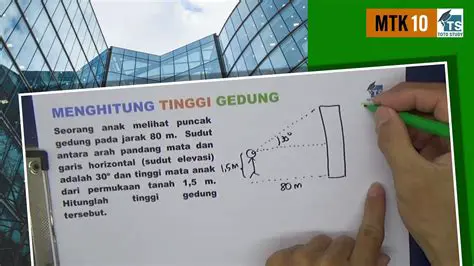 MTK 10
TS
TOTO STUDY
MENGHITUNG TINGGI GEDUNG
Seorang anak melihat puncak
gedung pada jarak 80 m. Sudut
antara arah pandang mata dan
garis horizontal (sudut elevasi)
adalah 30° dan tinggi mata anak
dari permukaan tanah 1,5 m.
Hitunglah tinggi gedung
tersebut.
30°
1,5 M
80 m